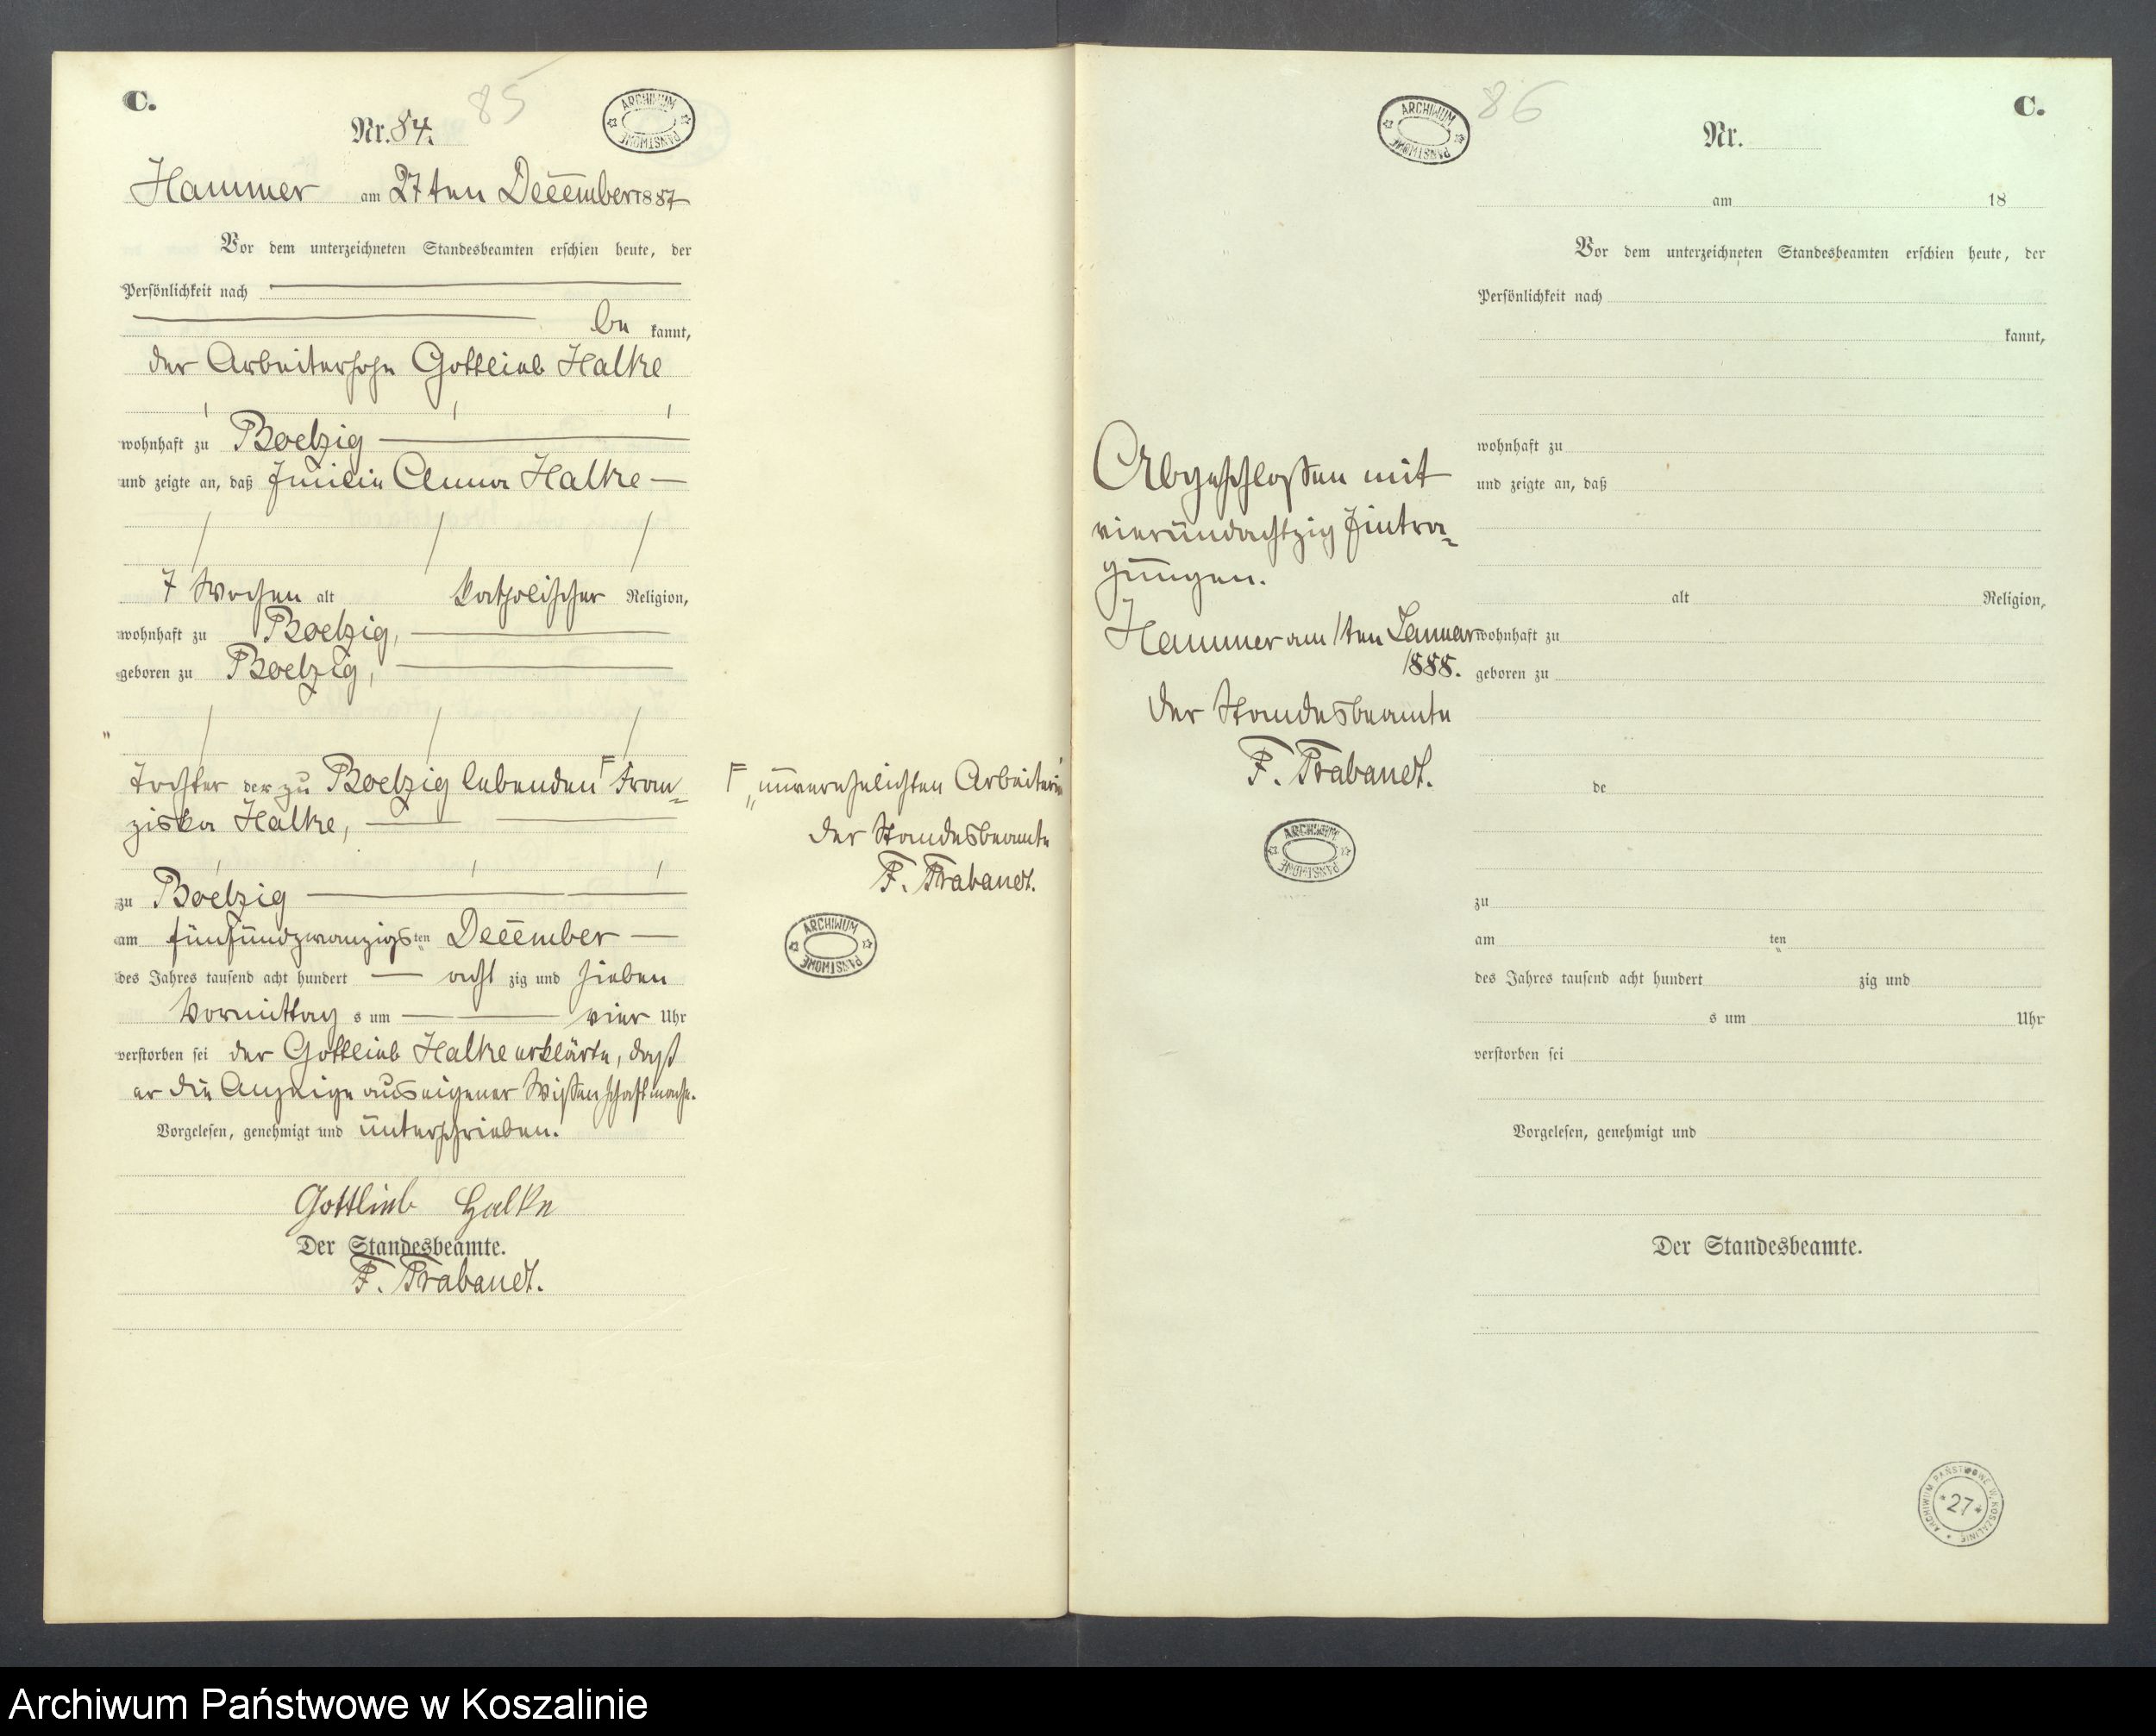 C.
85
Nr. 84.
ARCHIWUM PAŃSTWOWE
Hammer am 27ten December 1887
Vor dem unterzeichneten Standesbeamten erschien heute, der
Persönlichkeit nach
be kannt,
der Arbeitersohn Gottlieb Halke
wohnhaft zu Boetzig
und zeigte an, daß Emilie Anna Halke
7 Wochen alt katholischer Religion,
wohnhaft zu Boetzig,
geboren zu Boetzig,
Tochter der zu Boetzig lebenden Fran-
ziska Halke,
zu Boetzig
am fünfundzwanzigsten December
des Jahres tausend acht hundert acht zig und sieben
Vormittags um vier Uhr
verstorben sei der Gottlieb Halke erklärte, daß
er die Anzeige aus eigener Wissenschaft mache.
Vorgelesen, genehmigt und unterschrieben.
Gottlieb Halke
Der Standesbeamte.
F. Brabandt.
„unverehelichten Arbeiterin"
Der Standesbeamte
F. Brabandt.
ARCHIWUM PAŃSTWOWE
ARCHIWUM PAŃSTWOWE
86
C.
Nr.
am 18
Vor dem unterzeichneten Standesbeamten erschien heute, der
Persönlichkeit nach
kannt,
wohnhaft zu
und zeigte an, daß
alt Religion,
wohnhaft zu
geboren zu
de
zu
am ten
des Jahres tausend acht hundert zig und
s um Uhr
verstorben sei
Vorgelesen, genehmigt und
Der Standesbeamte.
Abgeschlossen mit
vierundachtzig Eintra-
gungen.
Hammer am 1ten Januar
1888.
Der Standesbeamte
F. Brabandt.
ARCHIWUM PAŃSTWOWE
ARCHIWUM PAŃSTWOWE W KOSZALINIE
*27*
Archiwum Państwowe w Koszalinie